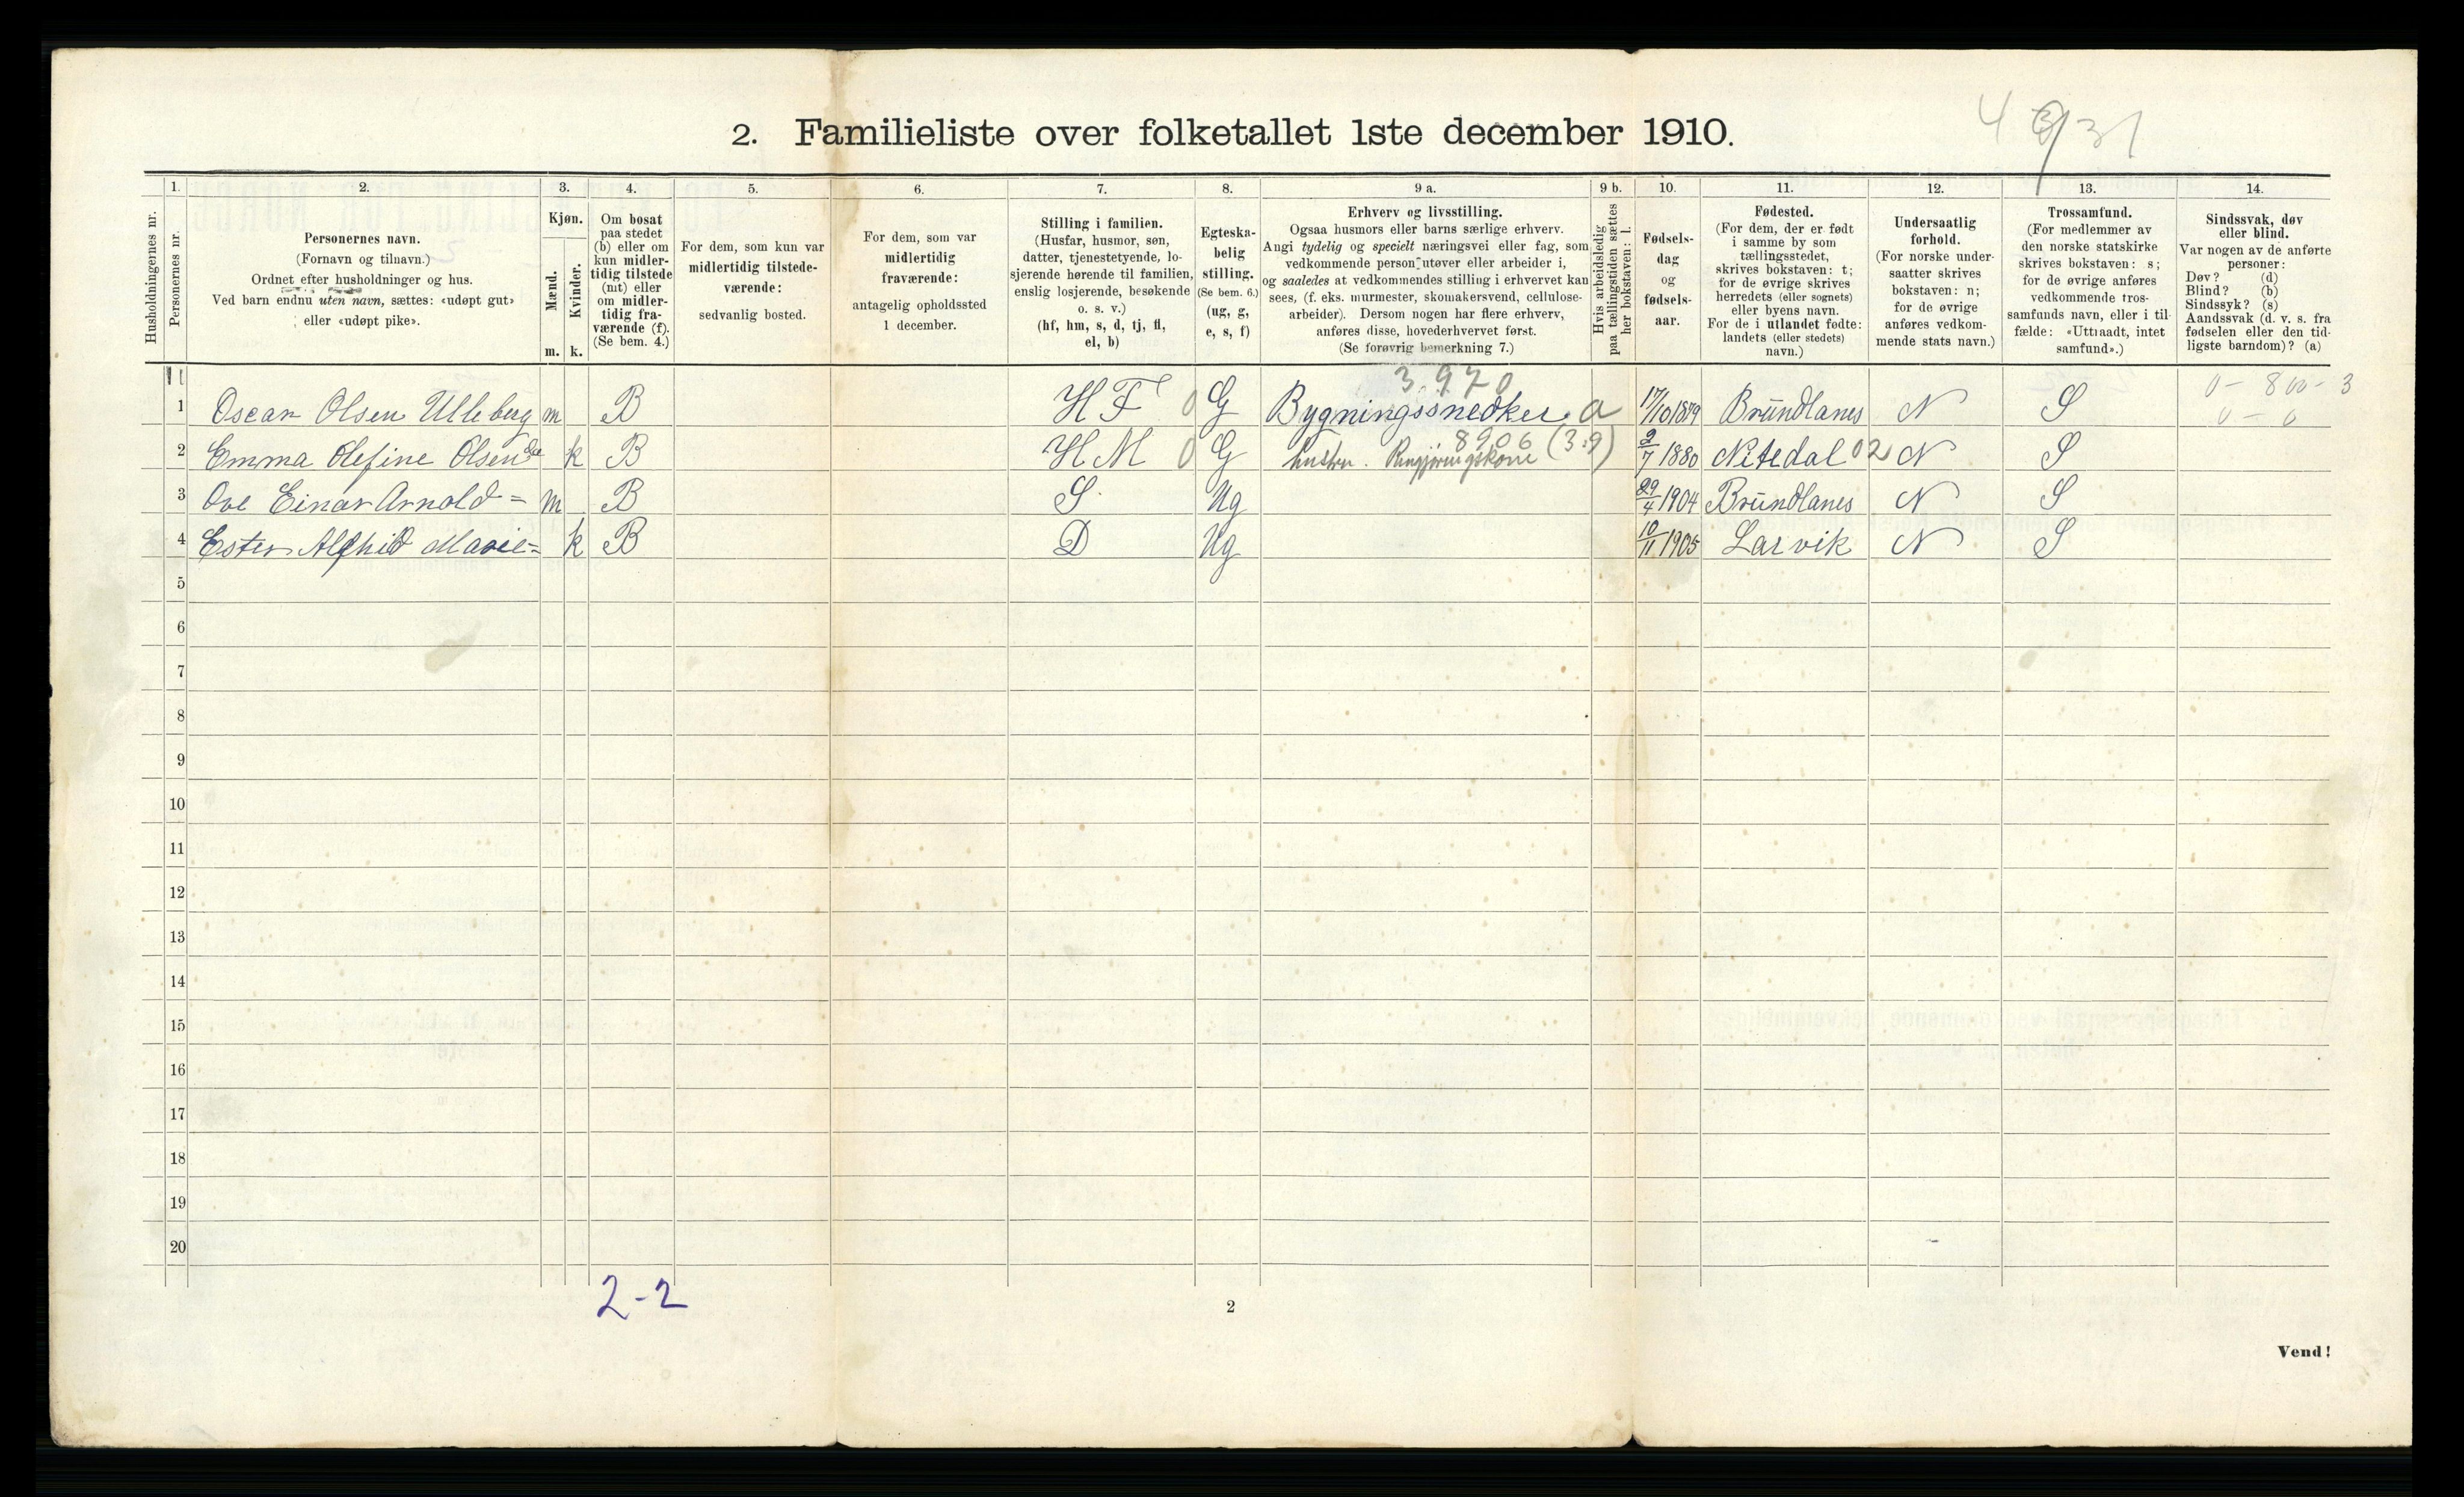 4 3/31
2. Familieliste over folketallet 1ste december 1910.
1. 2. 3. 4. 5. 6. 7. 8. 9 a. 9 b. 10. 11. 12. 13. 14.
Husholdningernes nr.
Personernes nr.
Personernes navn.
(Fornavn og tilnavn.)
Ordnet efter husholdninger og hus.
Ved barn endnu uten navn, sættes: «udøpt gut»
eller «udøpt pike».
Kjøn.
Mænd.
m.
Kvinder.
k.
Om bosat
paa stedet
(b) eller om
kun midler-
tidig tilstede
(mt) eller
om midler-
tidig fra-
værende (f).
(Se bem. 4.)
For dem, som kun var
midlertidig tilstede-
værende:
sedvanlig bosted.
For dem, som var
midlertidig
fraværende:
antagelig opholdssted
1 december.
Stilling i familien.
(Husfar, husmor, søn,
datter, tjenestetyende, lo-
sjerende hørende til familien,
enslig losjerende, besøkende
o. s. v.)
(hf, hm, s, d, tj, fl,
el, b)
Egteska-
belig
stilling.
(Se bem. 6.)
(ug, g,
e, s, f)
Erhverv og livsstilling.
Ogsaa husmors eller barns særlige erhverv.
Angi tydelig og specielt næringsvei eller fag, som
vedkommende person utøver eller arbeider i,
og saaledes at vedkommendes stilling i erhvervet kan
sees, (f. eks. murmester, skomakersvend, cellulose-
arbeider). Dersom nogen har flere erhverv,
anføres disse, hovederhvervet først.
(Se forøvrig bemerkning 7.)
Hvis arbeidsledig
paa tællingstiden sættes
her bokstaven: l.
Fødsels-
dag
og
fødsels-
aar.
Fødested.
(For dem, der er født
i samme by som
tællingsstedet,
skrives bokstaven: t;
for de øvrige skrives
herredets (eller sognets)
eller byens navn.
For de i utlandet fødte:
landets (eller stedets)
navn.)
Undersaatlig
forhold.
(For norske under-
saatter skrives
bokstaven: n;
for de øvrige
anføres vedkom-
mende stats navn.)
Trossamfund.
(For medlemmer av
den norske statskirke
skrives bokstaven: s;
for de øvrige anføres
vedkommende tros-
samfunds navn, eller i til-
fælde: «Uttraadt, intet
samfund».)
Sindssvak, døv
eller blind.
Var nogen av de anførte
personer:
Døv? (d)
Blind? (b)
Sindssyk? (s)
Aandssvak (d. v. s. fra
fødselen eller den tid-
ligste barndom)? (a)
3.970 0 - 800 - 3
1 Oscar Olsen Ulleberg m B HF 0 G Bygningssnedker a 17/10 1879 Brundlanes N S 0 - 0
8906 (3.9)
2 Emma Olefine Olsen do k B HM 0 G hustru. Rengjøringskone 2/7 1880 Nitedal 02 N S
3 Ove Einar Arnold = m B S Ug 29/4 1904 Brundlanes N S
4 Ester Alfhild Marie = k B D Ug 10/11 1905 Larvik N S
5
6
7
8
9
10
11
12
13
14
15
16
17
18
19
20
2-2
2
Vend!